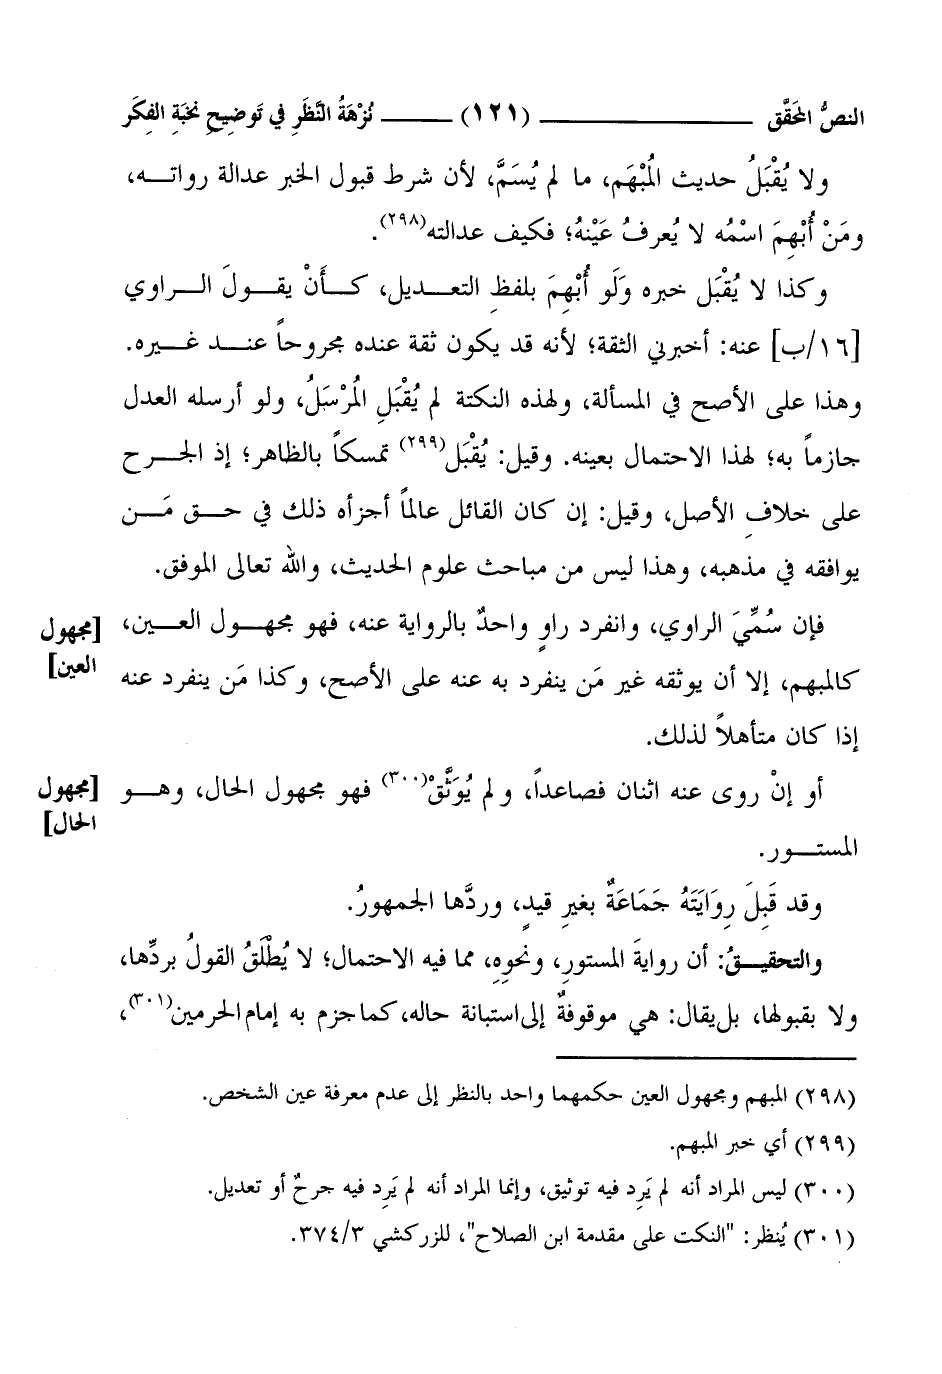 النصُّ المحَقَّق ــــــــــــ (١٢١) ــــــــ نُزْهَةُ النَّظَرِ في تَوضِيحِ نخبَةِ الفِكَر
ولا يُقْبَلُ حديث المُبْهَم، ما لم يُسَمَّ، لأن شرط قبول الخبر عدالة رواتـــه،
ومَنْ أُبْهِمَ اسْمُه لا يُعرفُ عَيْنُهُ؛ فكيف عدالته(٢٩٨).
وكذا لا يُقْبَل خبره وَلَو أُبْهِمَ بلفظِ التعــديل، كــأَنْ يقــولَ الــراوي
[١٦/ب] عنه: أخبرني الثقة؛ لأنه قد يكون ثقة عنده مجروحاً عنــد غــيره.
وهذا على الأصح في المسألة، ولهذه النكتة لم يُقْبَلِ المُرْسَلُ، ولو أرسله العدل
جازماً به؛ لهذا الاحتمال بعينه. وقيل: يُقْبَل(٢٩٩) تمسكاً بالظاهر؛ إذ الجــرح
على خلافِ الأصل، وقيل: إن كان القائل عالماً أجزأه ذلك في حــق مَــن
يوافقه في مذهبه، وهذا ليس من مباحث علوم الحديث، والله تعالى الموفق.
فإن سُمِّيَ الراوي، وانفرد راوٍ واحدٌ بالرواية عنه، فهو مجهــول العــين،
[مجهول
كالمبهم، إلا أن يوثقه غير مَن ينفرد به عنه على الأصح، وكذا مَن ينفرد عنه
العين]
إذا كان متأهلاً لذلك.
أو إنْ روى عنه اثنان فصاعداً، ولم يُوَثَّقْ(٣٠٠) فهو مجهول الحال، وهــو
[مجهول
الحال]
المستــور.
وقد قَبِلَ رِوَايَتَهُ جَمَاعَةٌ بغيرِ قيدٍ، وردَّها الجمهورُ.
والتحقيــقُ: أن روايةَ المستورِ، ونحوِهِ، مما فيه الاحتمال؛ لا يُطْلَقُ القولُ بردِّها،
ولا بقبولها، بل يقال: هي موقوفةٌ إلى استبانة حاله، كما جزم به إمام الحرمين(٣٠١)،
(٢٩٨) المبهم ومجهول العين حكمهما واحد بالنظر إلى عدم معرفة عين الشخص.
(٢٩٩) أي خبر المبهم.
(٣٠٠) ليس المراد أنه لم يَرِد فيه توثيق، وإنما المراد أنه لم يَرِد فيه جرحٌ أو تعديل.
(٣٠١) يُنظر: "النكت على مقدمة ابن الصلاح"، للزركشي ٣/٣٧٤.